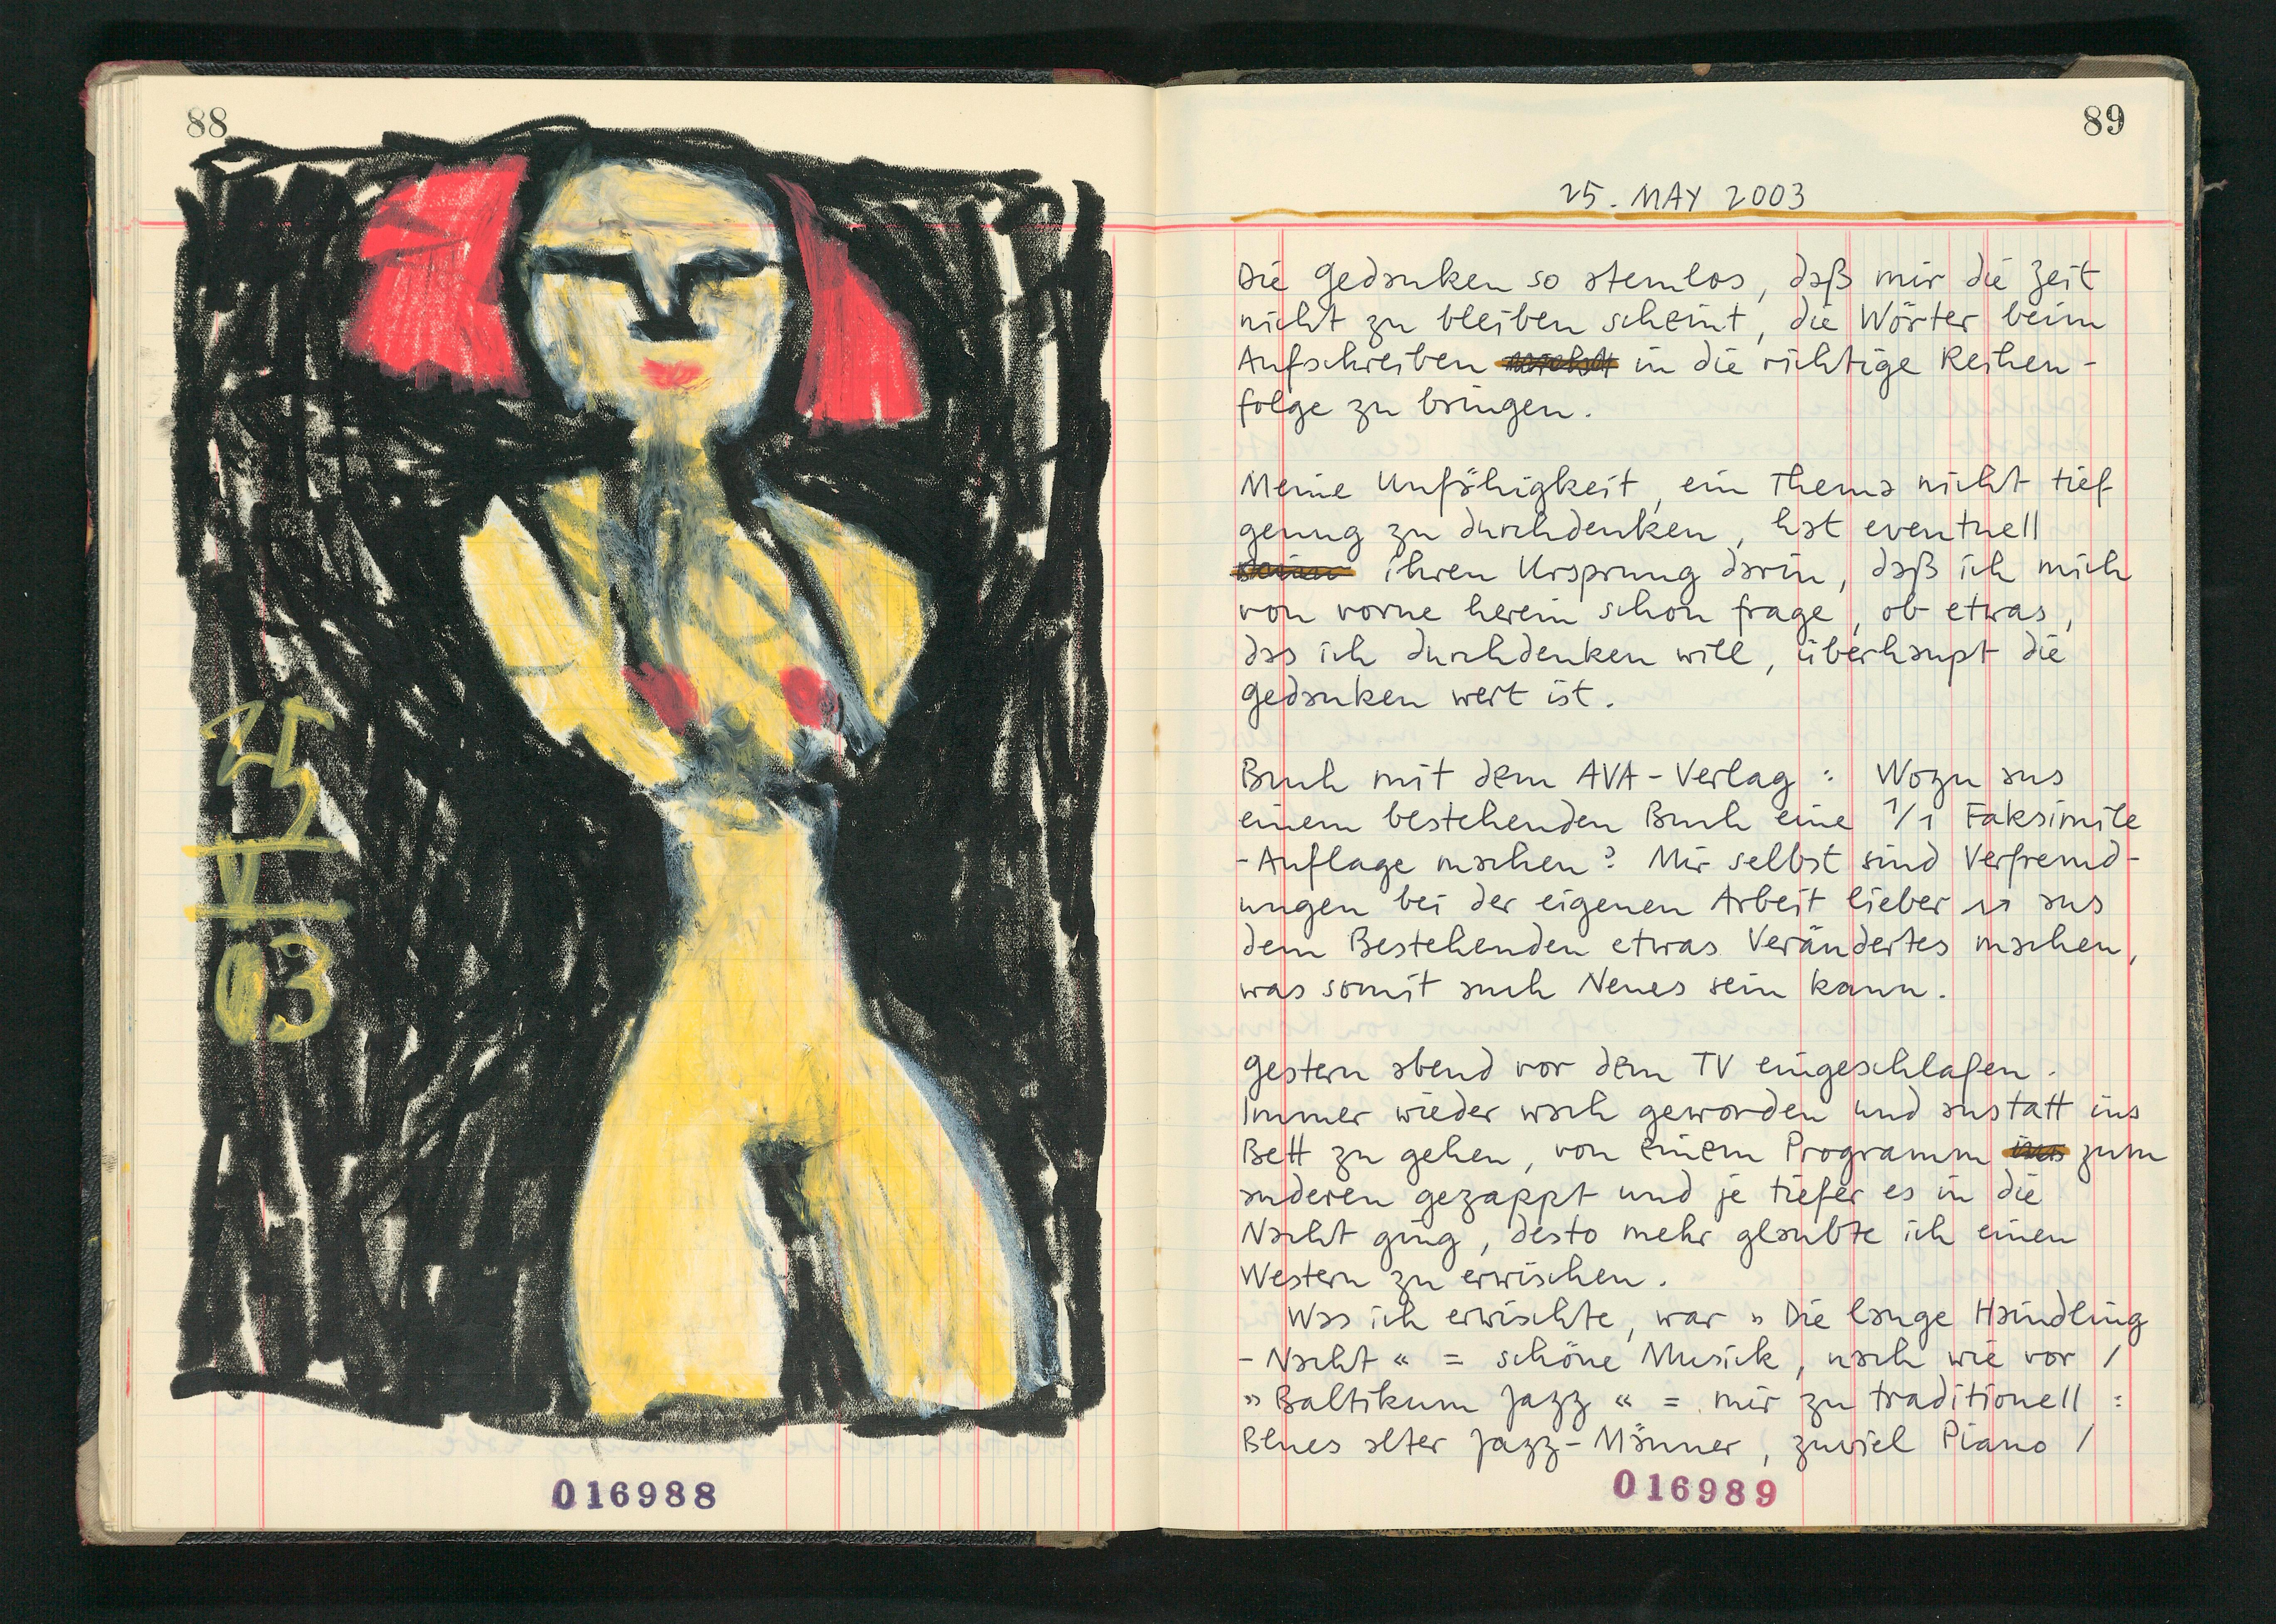 88
25
V
03
016988
89
25. MAY 2003
Die Gedanken so atemlos, daß mir die Zeit
nicht zu bleiben scheint, die Wörter beim
Aufschreiben in die richtige Reihen-
folge zu bringen.
Meine Unfähigkeit, ein Thema nicht tief
genug zu durchdenken, hat eventuell
ihren Ursprung darin, daß ich mich
von vorne herein schon frage, ob etwas,
das ich durchdenken will, überhaupt die
Gedanken wert ist.
Buch mit dem AVA-Verlag: Wozu aus
einem bestehenden Buch eine 1/1 Faksimile
-Auflage machen? Mir selbst sind Verfremd-
ungen bei der eigenen Arbeit lieber aus
dem Bestehenden etwas Verändertes machen,
was somit auch Neues sein kann.
Gestern abend vor dem TV eingeschlafen.
Immer wieder wach geworden und anstatt ins
Bett zu gehen, von einem Programm zum
anderen gezappt und je tiefer es in die
Nacht ging, desto mehr glaubte ich einen
Western zu erwischen.
Was ich erwischte, war » Die lange Haindling
- Nacht « = schöne Musick, nach wie vor /
» Baltikum Jazz « = mir zu traditionell :
Blues alter Jazz-Männer, zuviel Piano /
016989